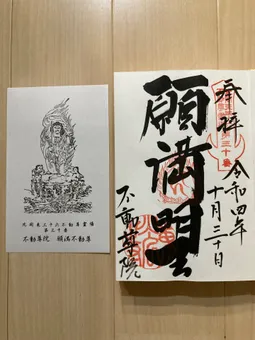 奉拝
令和四年
十月三十日
願満明王
不動尊院
北関東三十六不動尊霊場
第三十番
不動尊院　願満不動尊